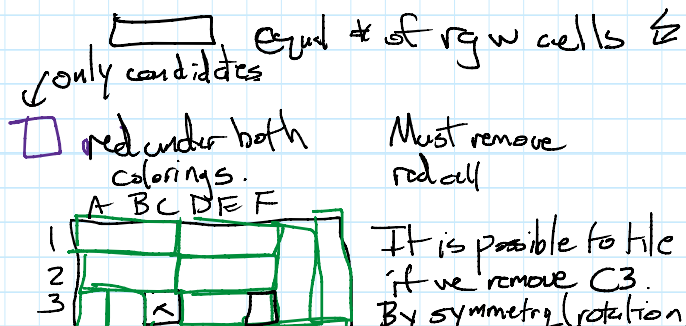 equal # of rgw cells
only candidates
red under both
colorings.
Must remove
red cell
A B C D E F
1
2
3
It is possible to tile
if we remove C3.
By symmetry/rotation